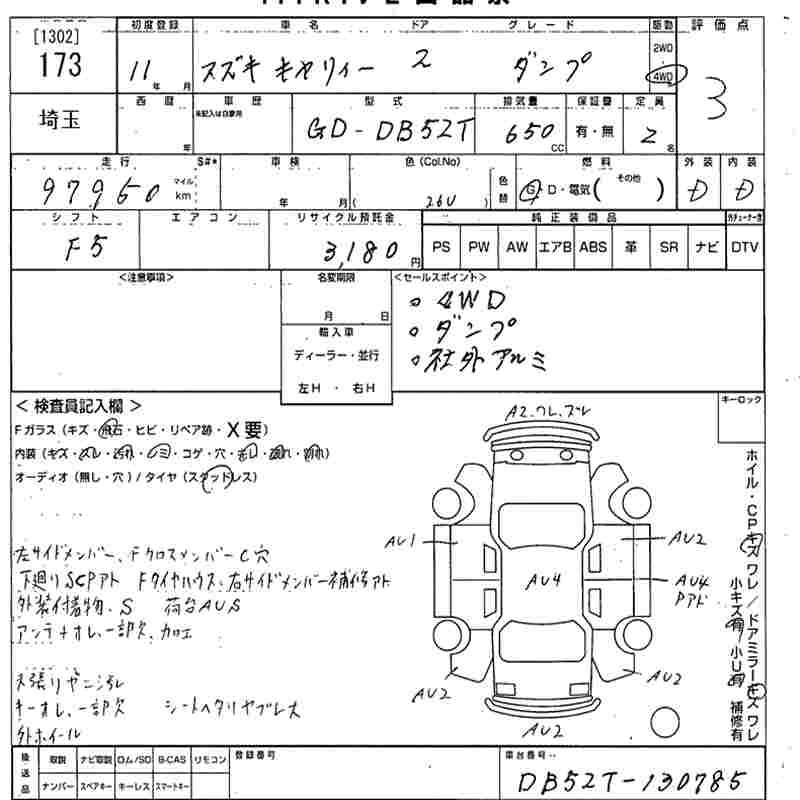 [1302]
173
埼玉
初度登録 車名 ドア グレード 駆動 評価点
11 年 月 スズキ キャリィー 2 ダンプ 2WD 4WD 3
西暦 車歴 型式 排気量 保証書 定員
年 未記入は自家用 GD-DB52T 650 CC 有・無 2 名
走行 S#* 車検 色(Col.No) 燃料 外装 内装
97950 マイル km 年 月 ( 26U ) 色替 G・D・電気( その他 ) D D
シフト エアコン リサイクル預託金 純正装備品
F5 3,180 円 PS PW AW エアB ABS 革 SR ナビ DTV
<注意事項> 名変期限 <セールスポイント>
月 日
輸入車
ディーラー・並行
左H ・ 右H
○ 4WD
○ ダンプ
○ 社外アルミ
< 検査員記入欄 > キーロック
Fガラス (キズ・飛石・ヒビ・リペア跡・X要)
オーディオ (無し・穴) / タイヤ (スタッドレス)
左サイドメンバー、FクロスメンバーC穴
下廻りSCPアト Fタイヤハウス、右サイドメンバー補修アト
外装付着物、S 荷台AUS
アンテナオレ、一部欠、カロエ
キーオレ、一部欠 シートヘタリヤブレ大
外ホイール
A2.ワレ.ズレ
AU1
AU2
AU4
AU4
Pアト
AU2
AU2
AU2
ホイル・CPキズワレ/ドアミラーキズワレ
小キズ有/小U有 補修有
後送品 取説 ナビ取説 ロム/SD B-CAS リモコン 登録番号 車台番号
ナンバー スペアキー キーレス スマートキー DB52T-130785